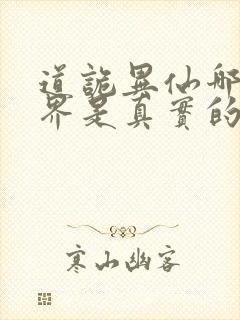 道詭異仙哪
界是真實的
寒山幽客